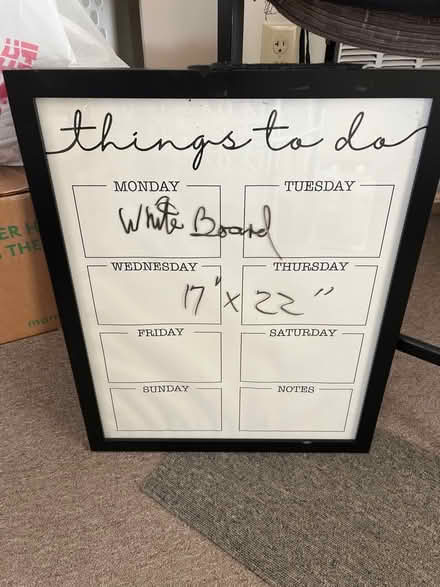 things to do
MONDAY TUESDAY
White Board
WEDNESDAY THURSDAY
17" x 22"
FRIDAY SATURDAY
SUNDAY NOTES
ER H
THE